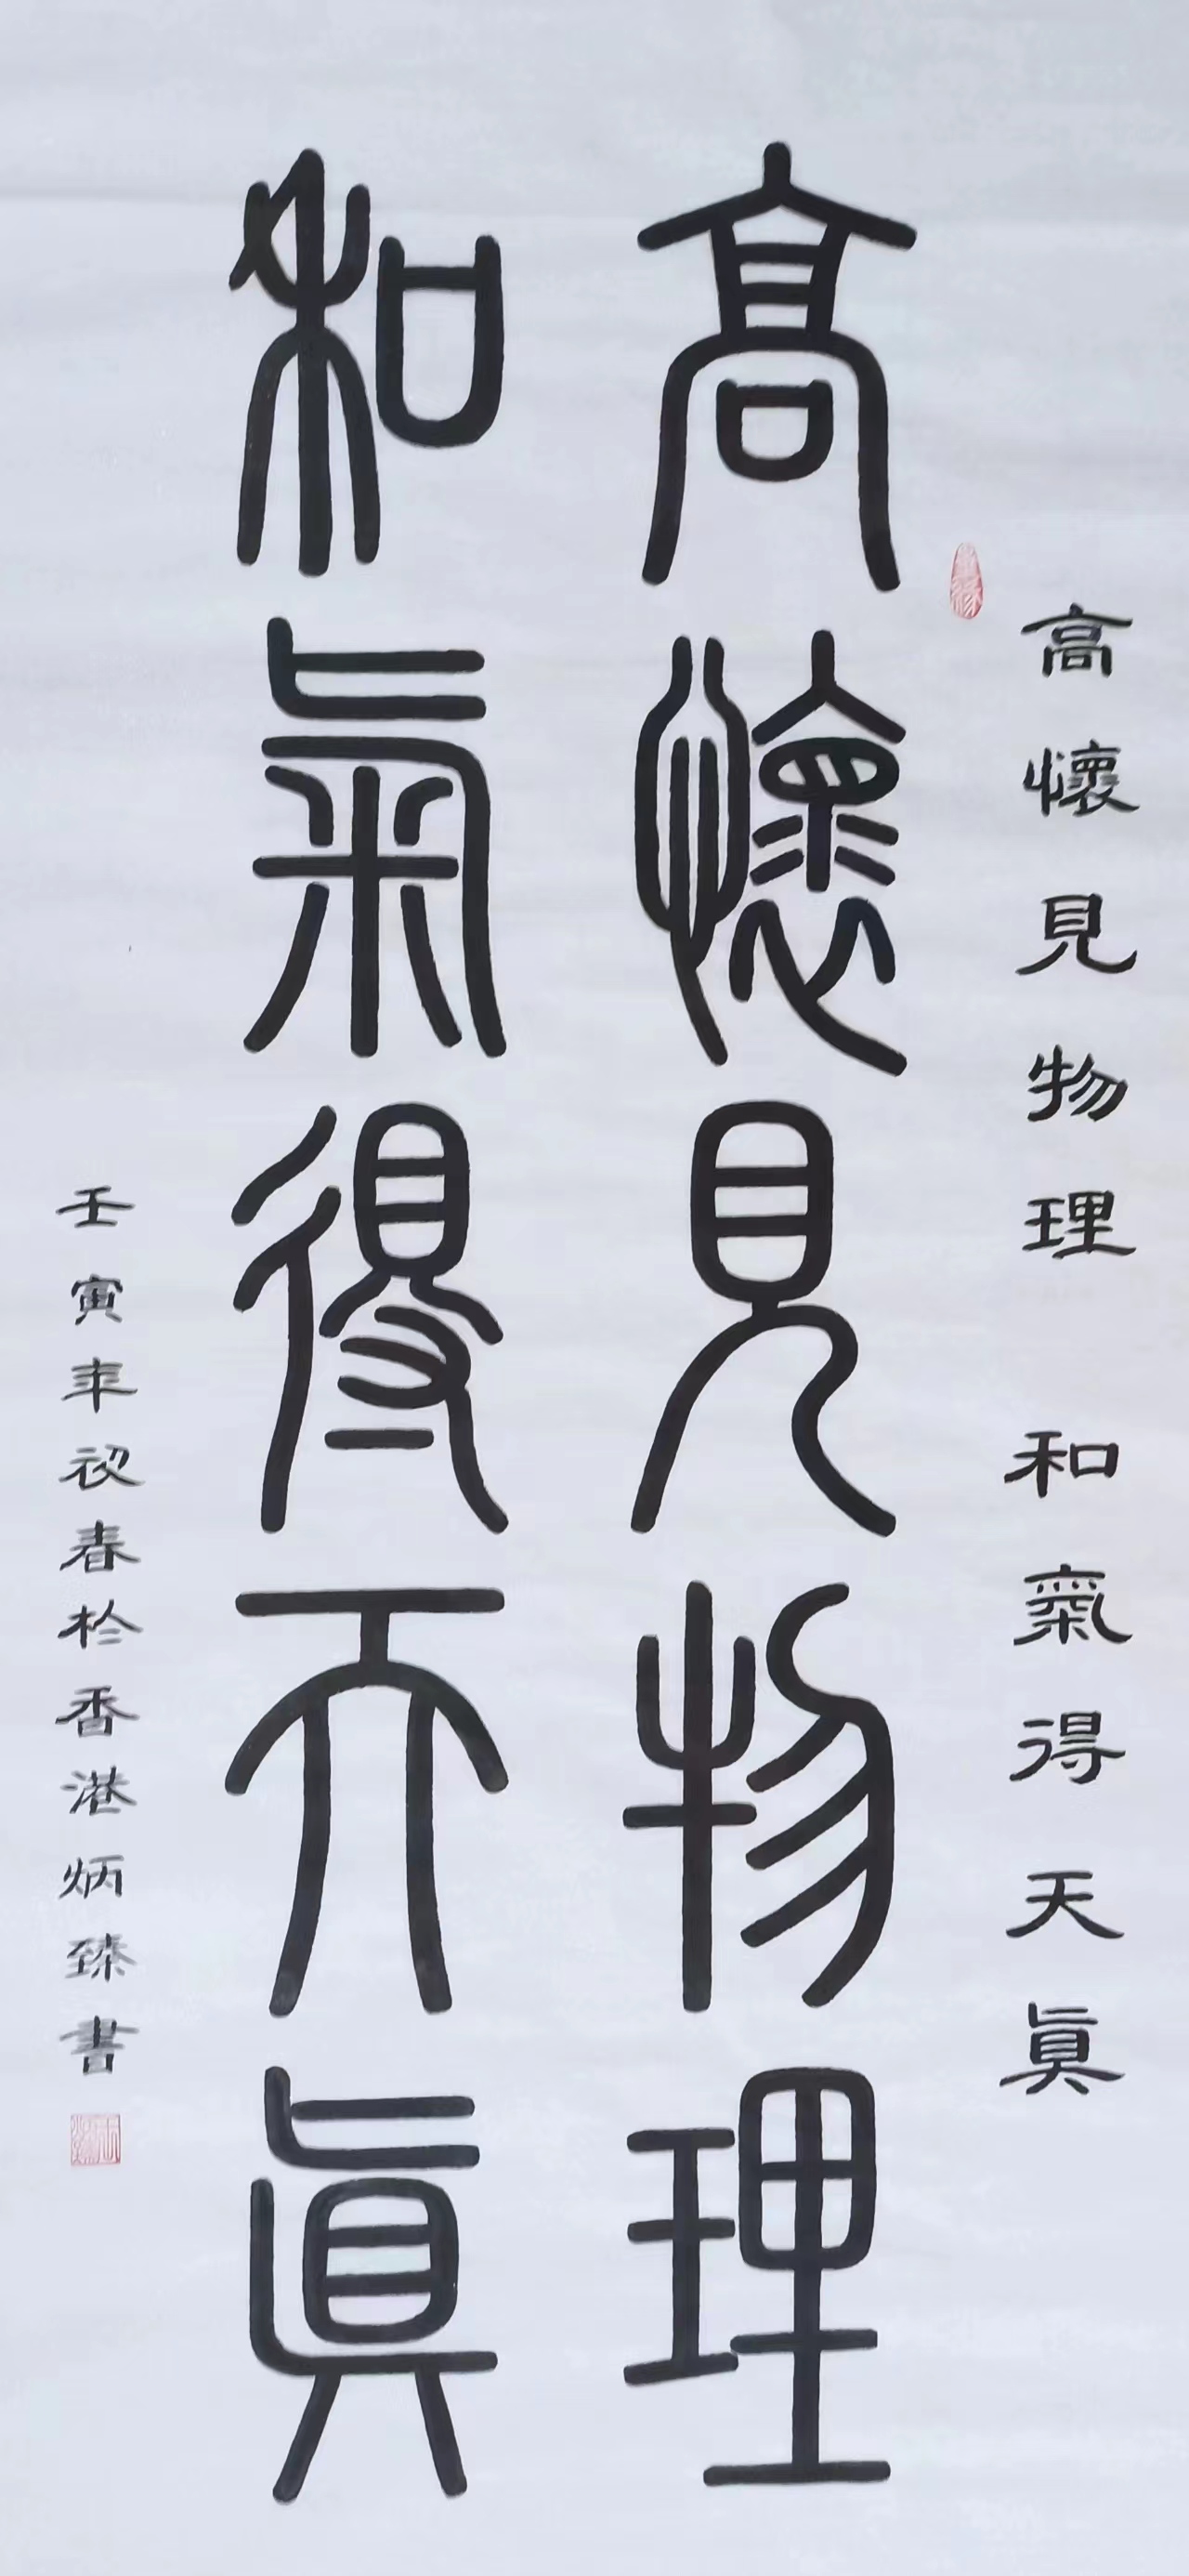 高懷見物理 和氣得天眞
高懷見物理
和氣得天眞
壬寅年初春於香港炳臻書